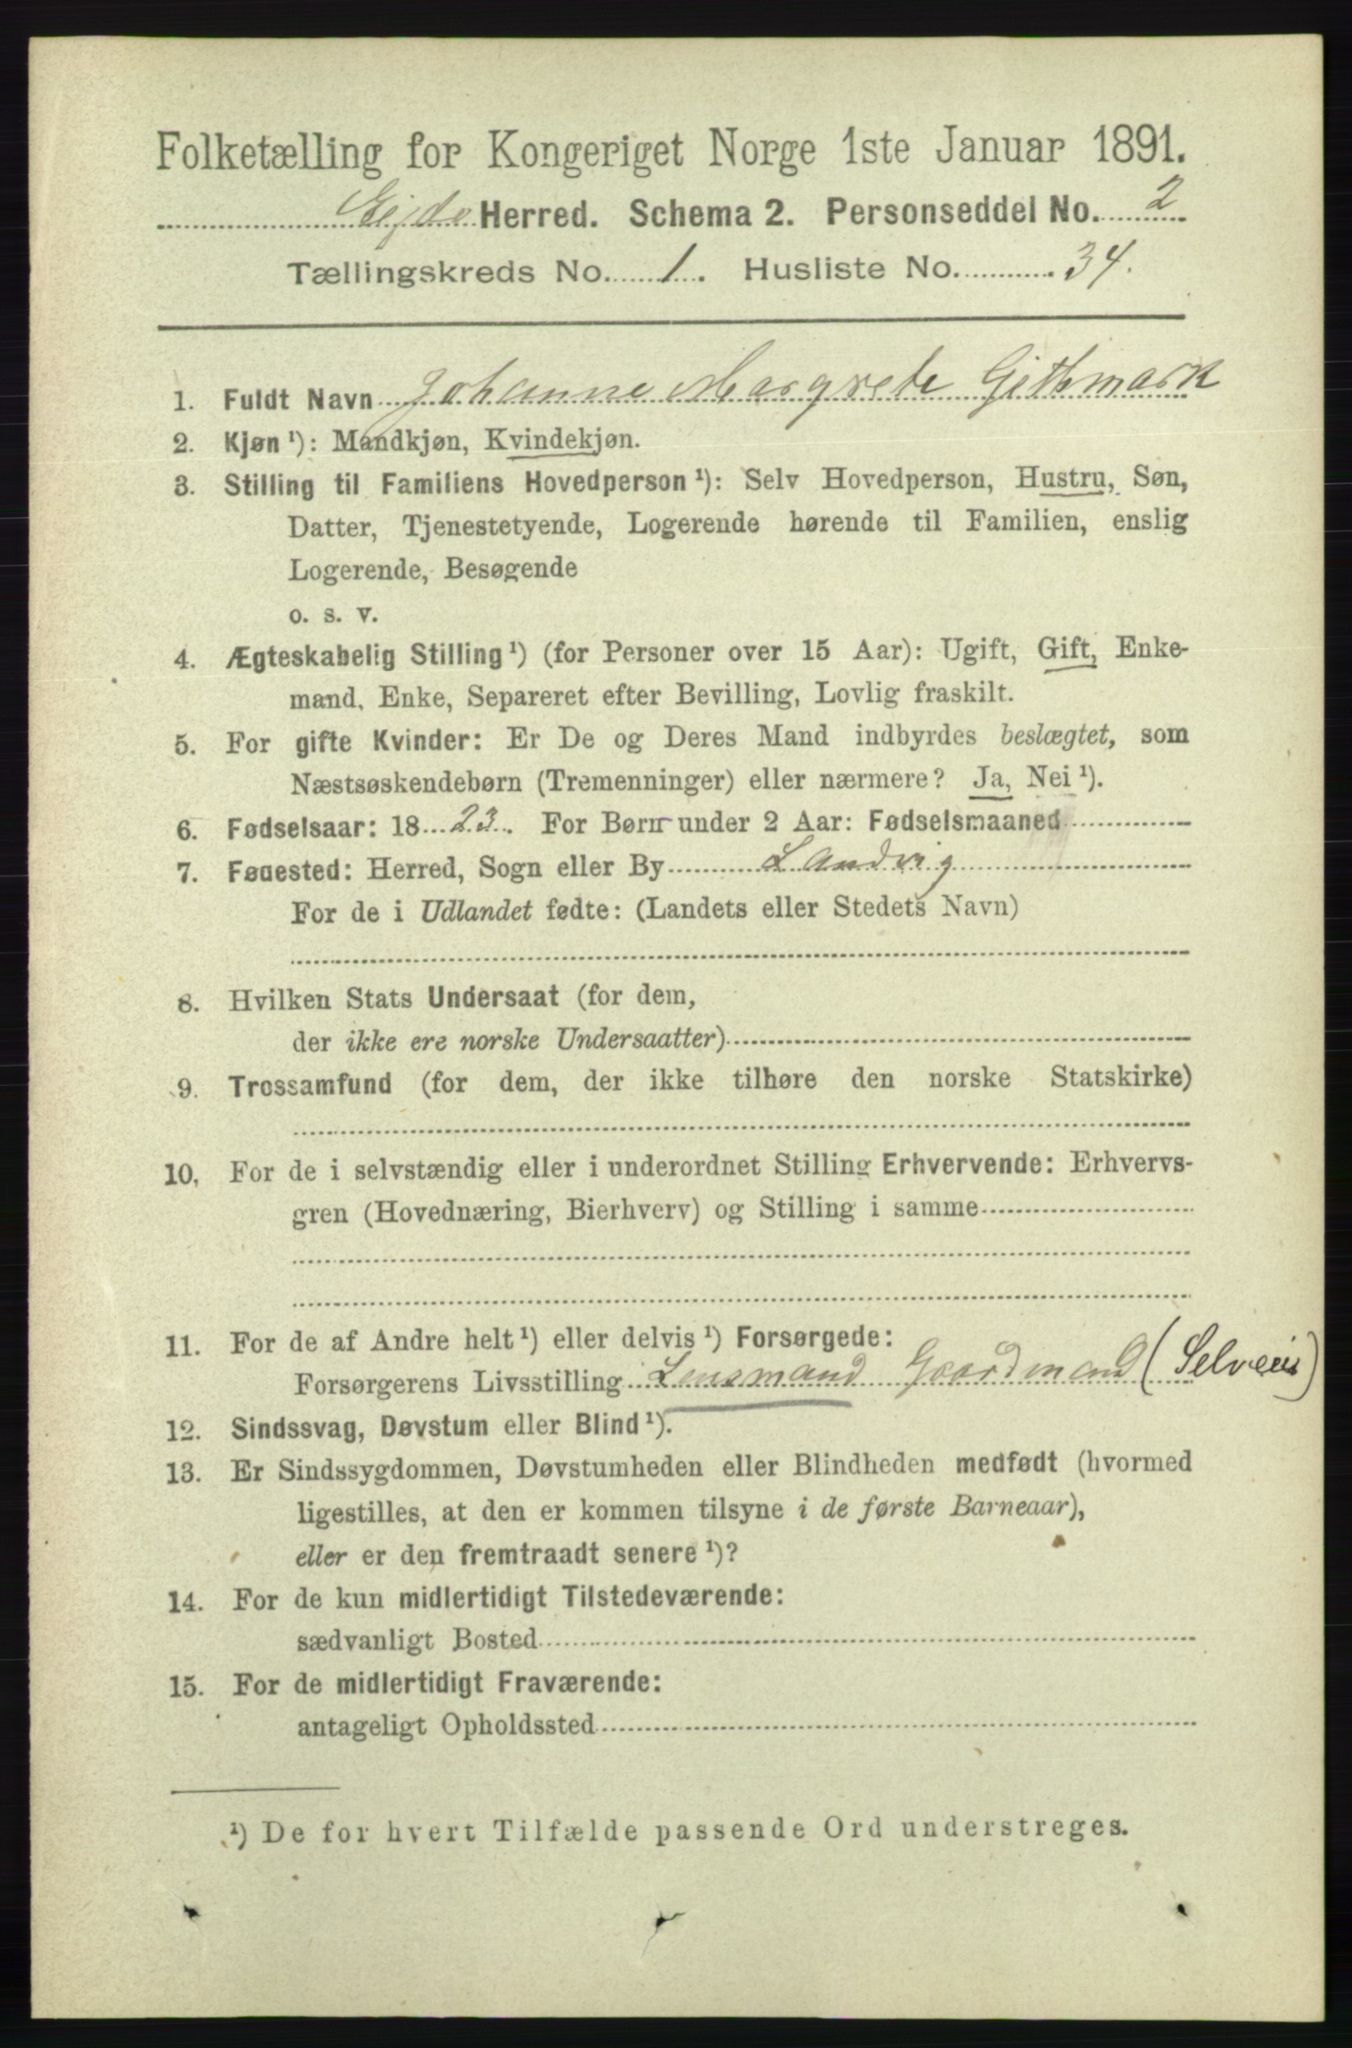 Folketælling for Kongeriget Norge 1ste Januar 1891.
Eijde Herred. Schema 2. Personseddel No. 2
Tællingskreds No. 1. Husliste No. 34.
1. Fuldt Navn Johanne Margrete Githmark
2. Kjøn ¹): Mandkjøn, Kvindekjøn.
3. Stilling til Familiens Hovedperson ¹): Selv Hovedperson, Hustru, Søn,
Datter, Tjenestetyende, Logerende hørende til Familien, enslig
Logerende, Besøgende
o. s. v.
4. Ægteskabelig Stilling ¹) (for Personer over 15 Aar): Ugift, Gift, Enke-
mand, Enke, Separeret efter Bevilling, Lovlig fraskilt.
5. For gifte Kvinder: Er De og Deres Mand indbyrdes beslægtet, som
Næstsøskendebørn (Tremenninger) eller nærmere? Ja, Nei ¹).
6. Fødselsaar: 1823. For Børn under 2 Aar: Fødselsmaaned
7. Føuested: Herred, Sogn eller By Landvig
For de i Udlandet fødte: (Landets eller Stedets Navn)
8. Hvilken Stats Undersaat (for dem,
der ikke ere norske Undersaatter)
9. Trossamfund (for dem, der ikke tilhøre den norske Statskirke)
10. For de i selvstændig eller i underordnet Stilling Erhvervende: Erhvervs-
gren (Hovednæring, Bierhverv) og Stilling i samme
11. For de af Andre helt ¹) eller delvis ¹) Forsørgede:
Forsørgerens Livsstilling Lensmand Gaardmand (Selveier)
12. Sindssvag, Døvstum eller Blind ¹).
13. Er Sindssygdommen, Døvstumheden eller Blindheden medfødt (hvormed
ligestilles, at den er kommen tilsyne i de første Barneaar),
eller er den fremtraadt senere ¹)?
14. For de kun midlertidigt Tilstedeværende:
sædvanligt Bosted
15. For de midlertidigt Fraværende:
antageligt Opholdssted
¹) De for hvert Tilfælde passende Ord understreges.